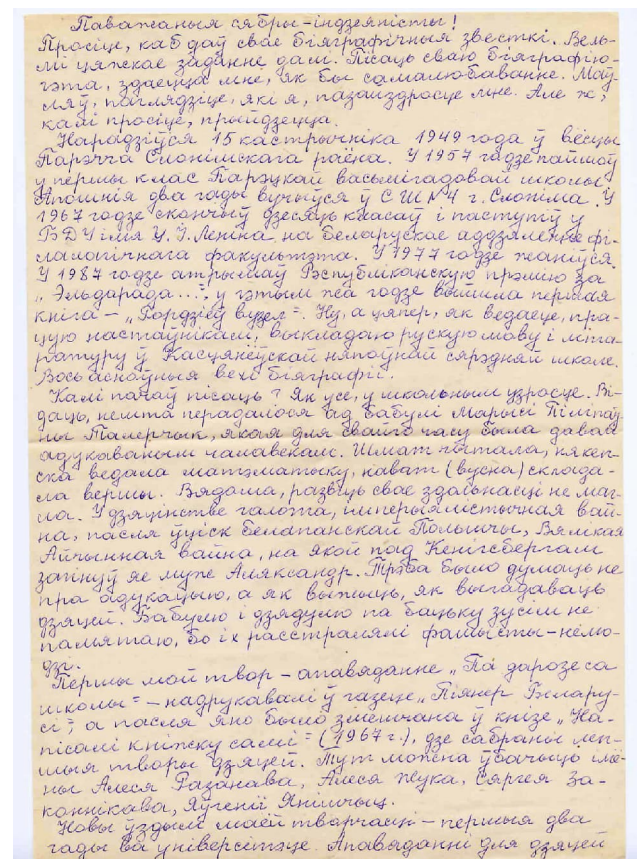 Паважаныя сябры-індзеяністы!
Просіце, каб даў свае біяграфічныя звесткі. Вель-
мі цяжкае заданне далі. Пісаць сваю біяграфію-
гэта, здаецца мне, як бы самалюбаванне. Маў-
ляў, паглядзіце, які я, пазайздросце мне. Але ж,
калі просіце, прыйдзецца.
Нарадзіўся 15 кастрычніка 1949 года ў вёсцы
Парэчча Слонімскага раёна. У 1957 годзе пайшоў
у першы клас Парэцкай васьмігадовай школы.
Апошнія два гады вучыўся ў СШ №4 г. Слоніма. У
1967 годзе скончыў дзесяць класаў і паступіў у
БДУ імя У. І. Леніна на беларускае аддзяленне фі-
лалагічнага факультэта. У 1977 годзе жаніўся.
У 1987 годзе атрымаў Рэспубліканскую прэмію за
„Эльдарада...", у гэтым жа годзе выйшла першая
кніга – „Гордзіеў вузел". Ну, а цяпер, як ведаеце, пра-
цую настаўнікам, выкладаю рускую мову і літа-
ратуру ў Касцянёўскай няпоўнай сярэдняй школе.
Вось асноўныя вехі біяграфіі.
Калі пачаў пісаць? Як усе, у школьным узросце. Ві-
даць, нешта перадалося ад бабулі Марысі Піліпаў-
ны Талерчык, якая для свайго часу была даволі
адукаваным чалавекам. Шмат чытала, някеп-
ска ведала матэматыку, нават (вусна) склада-
ла вершы. Вядома, развіць свае здольнасці не маг-
ла. У дзяцінстве галота, імперыялістычная вай-
на, пасля ўціск белапанскай Польшчы, Вялікая
Айчынная вайна, на якой под Кенігсбергам
загінуў яе муж Аляксандр. Трэба было думаць не
пра адукацыю, а як выжыць, як выгадаваць
дзяцей. Бабулю і дзядулю па бацьку зусім не
памятаю, бо іх расстралялі фашысты-нелю-
дзі.
Першы мой твор – апавяданне „Па дарозе са
школы" – надрукавалі ў газеце „Піянер Белару-
сі", а пасля яно было змешчана ў кнізе „На-
пісалі кніжку самі" (1967 г.), дзе сабраны леп-
шыя творы дзяцей. Тут можна ўбачыць імё-
ны Алеся Разанава, Алеся Жука, Сяргея За-
коннікава, Яўгеніі Янішчыц.
Новы ўздым маёй творчасці – першыя два
гады ва ўніверсітэце. Апавяданні для дзяцей